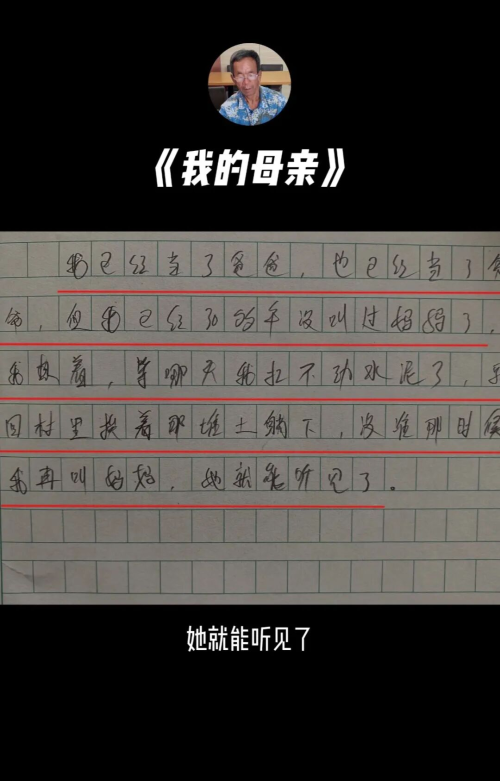 《我的母亲》
我已经当了爸爸,也已经当了爷
爷,但我已经30的年没叫过妈妈了,
我想着,等哪天我扛不动水泥了,
回村里挨着那堆土躺下,没准那时候
我再叫妈妈,她就能听见了。
她就能听见了